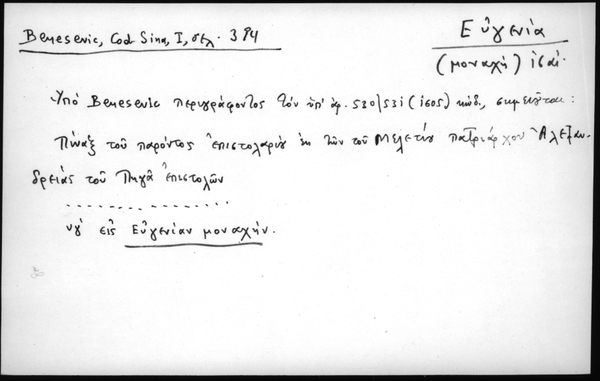 Benesevic, Cod. Sina, I, σελ. 384
Εὐγενία
(μοναχὴ) ις´αι.
Ὑπὸ Benesevic περιγράφοντος τὸν ὑπ' ἀρ. 530/531 (1605) κώδ., σημειοῦται:
Πίναξ τοῦ παρόντος ἐπιστολαρίου ἐκ τῶν τοῦ Μελετίου πατριάρχου Ἀλεξαν-
δρείας τοῦ Πηγᾶ ἐπιστολῶν
..................
νγ' εἰς Εὐγενίαν μοναχήν.